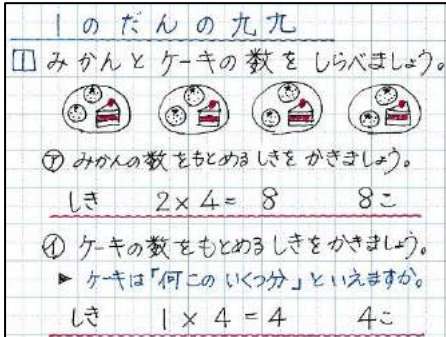 1のだんの九九
1 みかんとケーキの数をしらべましょう。
㋐ みかんの数をもとめるしきをかきましょう。
しき 2×4=8 8こ
㋑ ケーキの数をもとめるしきをかきましょう。
▶ ケーキは「何このいくつ分」といえますか。
しき 1×4=4 4こ